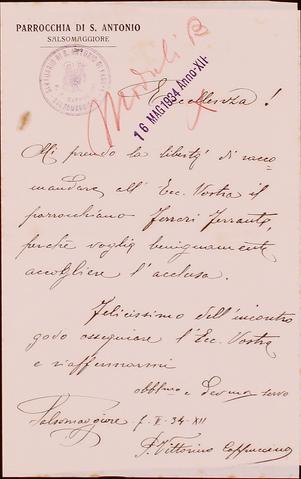 PARROCCHIA DI S. ANTONIO
SALSOMAGGIORE
Moduli B
16 MAG 1934 Anno XII
Eccellenza!
Mi prendo la libertà di racco
mandare all' Ecc. Vostra il
parrocchiano Ferreri Ferrante,
perchè voglia benignamente
accogliere l'acclusa.
Felicissimo dell'incontro
godo ossequiare l'Ecc. Vostra
e riaffermarmi
obbl.mo e Dev.mo servo
Salsomaggiore 34-XII
P. Vittorino Cappuccino